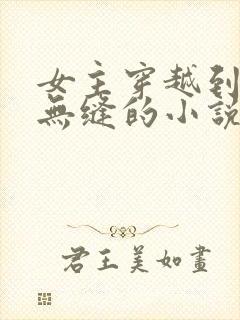 女主穿越到
無缝的小說
君王美如畫